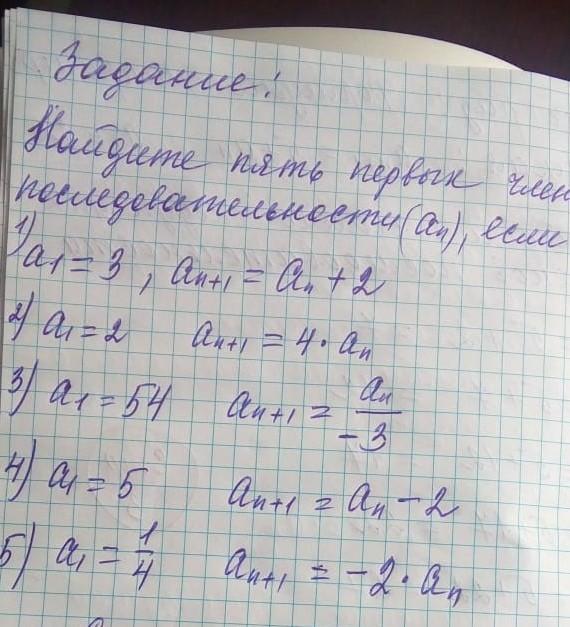 Задание:
Найдите пять первых член
последовательности (aₙ), если
1)
a₁ = 3, aₙ₊₁ = aₙ + 2
2) a₁ = 2 aₙ₊₁ = 4 · aₙ
3) a₁ = 54 aₙ₊₁ = aₙ / -3
4) a₁ = 5 aₙ₊₁ = aₙ - 2
5) a₁ = 1/4 aₙ₊₁ = -2 · aₙ